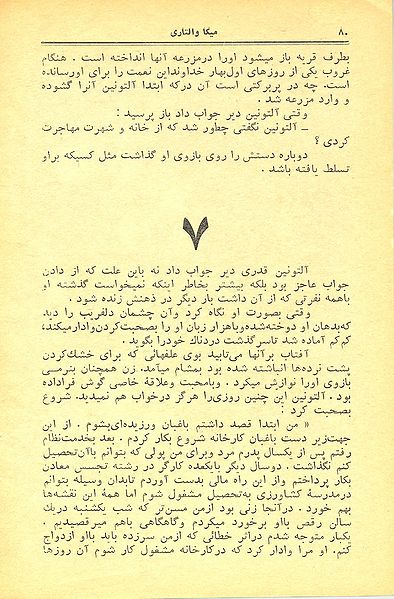 ۸۰
میکا والتاری
بطرف قریه باز میشود اورا درمزرعه آنها انداخته است . هنگام
غروب یکی از روزهای اول‌بهار خداونداین نعمت را برای اورسانده
است. چه در پربرکتی است آن درکه ابتدا آلتونین آنرا گشوده
و وارد مزرعه شد .
وقتی آلتونین دیر جواب داد باز پرسید :
ـ آلتونین نگفتی چطور شد که از خانه و شهرت مهاجرت
کردی ؟
دوباره دستش را روی بازوی او گذاشت مثل کسیکه براو
تسلط یافته باشد .
۷
آلتونین قدری دیر جواب داد نه باین علت که از دادن
جواب عاجز بود بلکه بیشتر بخاطر اینکه نمیخواست گذشته او
باهمه نفرتی که از آن داشت بار دیگر در ذهنش زنده شود .
وقتی بصورت او نگاه کرد وآن چشمان دلفریب را دید
که‌بدهان او دوخته‌شده‌وباهزار زبان او را بصحبت‌کردن‌وادارمیکند،
کم‌کم آماده شد تاسرگذشت دردناك خودرا بگوید .
آفتاب برآنها می‌تابید بوی علفهائی که برای خشك‌کردن
پشت نرده‌ها انباشته شده بود بمشام میآمد. زن همچنان بنرمی
بازوی اورا نوازش میکرد . وبامحبت وعلاقهٔ خاصی گوش فراداده
بود . آلتونین این چنین روزی‌را هرگز درخواب هم نمیدید. شروع
بصحبت کرد :
« من ابتدا قصد داشتم باغبان ورزیده‌ای‌بشوم . از این
جهت‌زیر دست باغبان کارخانه شروع بکار کردم . بعد بخدمت‌نظام
رفتم پس از یکسال پدرم مرد وبرای من پولی که بتوانم باآن‌تحصیل
کنم نگذاشت . دوسال دیگر بایکعده کارگر در رشته تجسس معادن
بکار پرداختم واز این راه مالی بدست آوردم تابدان وسیله بتوانم
درمدرسهٔ کشاورزی به‌تحصیل مشغول شوم اما همهٔ این نقشه‌ها
بهم خورد . درآنجا زنی بود ازمن مسن‌تر که شب یکشنبه دریك
سالن رقص بااو برخورد میکردم وگاهگاهی باهم میرقصیدیم .
یکبار متوجه شدم دراثر خطائی که ازمن سرزده باید بااو ازدواج
کنم. او مرا وادار کرد که درکارخانه مشغول کار شوم آن روزها